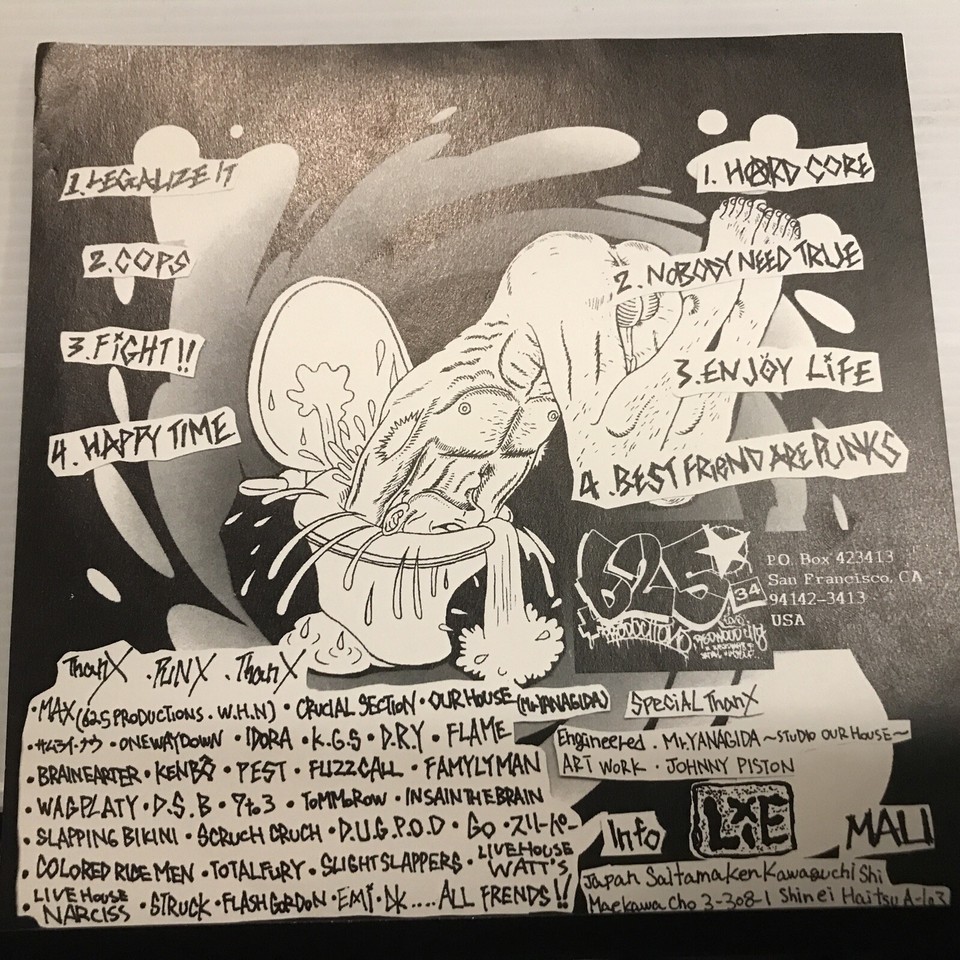 1.LEGALIZE IT
2.COPS
3.FiGHT!!
4.HAPPY TIME
1. HARD CORE
2. NOBODY NEED TRUE
3.ENJOY LiFE
4.BEST FRIEND ARE PUNKS
625
34
PRODUCTIONS
P.O. Box 423413
San Francisco, CA
94142-3413
USA
ThanX . PUNX . ThanX
・MAX(625 PRODUCTIONS . W.H.N)・CRUCIAL SECTION・OUR HOUSE (Mr.YANAGIDA)
・サムライ・ナウ・ONEWAYDOWN・IDORA・K.G.S・D.R.Y・FLAME
・BRAINEARTER・KENBO・PEST・FUZZCALL・FAMYLYMAN
・WAGPLATY・D.S.B・7to3・ToMMoRoW・INSAINTHEBRAIN
・SLAPPING BIKINI・SCRUCH CRUCH・D.U.G.P.O.D・GO・スリーパー
・COLORED RICE MEN・TOTALFURY・SLIGHTSLAPPERS・LIVEHOUSE WATT'S
・LIVE HOUSE NARCISS・STRUCK・FLASH GORDON・EMi・DK....ALL FRENDS!!
SPECiAL ThanX
Engineered . Mr.YANAGIDA ~STUDIO OUR HOUSE~
ART WORK・JOHNNY PISTON
Info LiE MALI
Japan Saitamaken Kawaguchi Shi
Maekawa Cho 3-308-1 Shinei Haitsu A-103